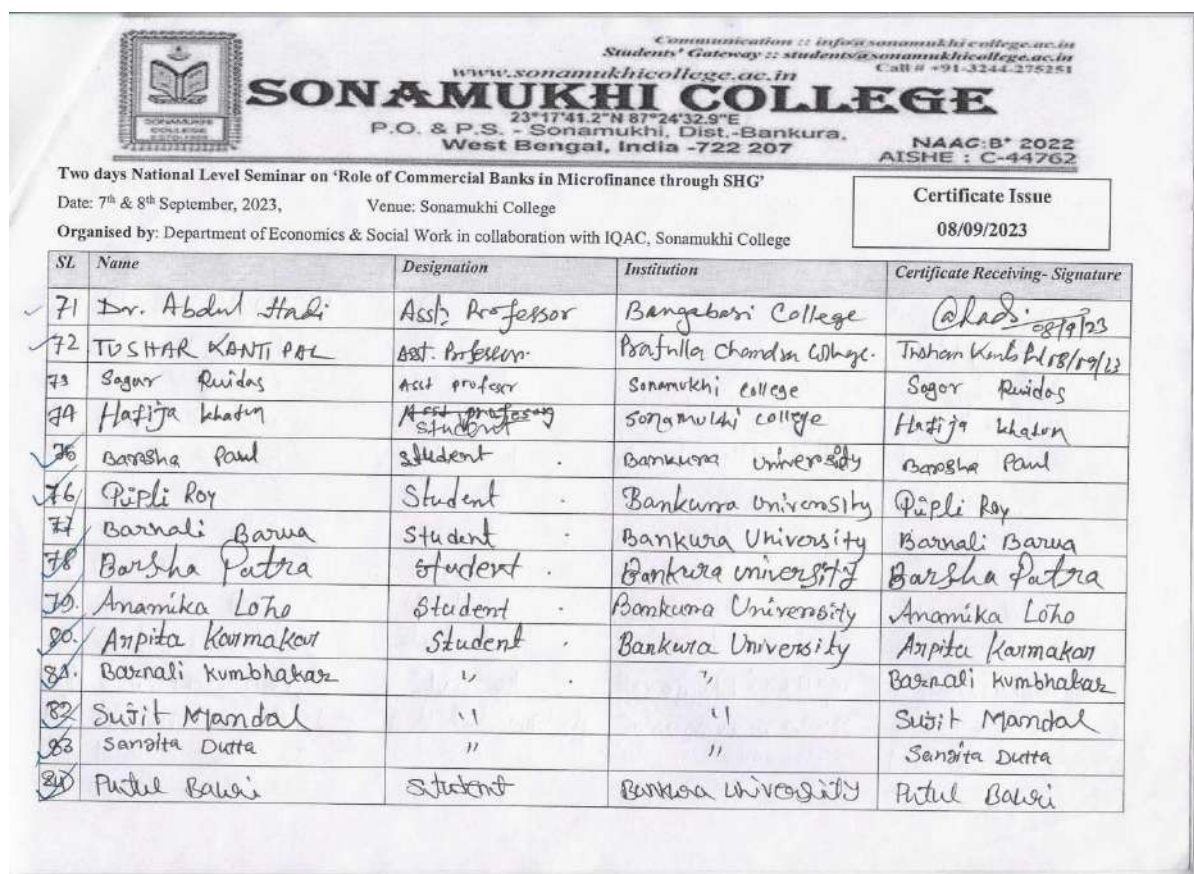 Communication :: info@sonamukhicollege.ac.in
Students' Gateway :: students@sonamukhicollege.ac.in
www.sonamukhicollege.ac.in Call # +91-3244-275251
SONAMUKHI COLLEGE
23°17'41.2"N 87°24'32.9"E
P.O. & P.S. - Sonamukhi, Dist.-Bankura,
West Bengal, India -722 207
NAAC:B+ 2022
AISHE : C-44762
SONAMUKHI
COLLEGE
Two days National Level Seminar on 'Role of Commercial Banks in Microfinance through SHG'
Date: 7th & 8th September, 2023, Venue: Sonamukhi College
Organised by: Department of Economics & Social Work in collaboration with IQAC, Sonamukhi College
Certificate Issue
08/09/2023
SL Name Designation Institution Certificate Receiving- Signature
71 Dr. Abdul Hadi Asst. Professor Bangabasi College 08/9/23
72 TUSHAR KANTI PAL Asst. Professor. Prafulla Chandra College. Tushar Kanti Pal 08/09/23
73 Sagar Ruidas Asst profesr Sonamukhi college Sagor Ruidas
74 Hafija khatun Student Sonamukhi college Hafija khatun
75 Barsha Paul Student Bankura University Barsha Paul
76 Pipli Roy Student Bankura University Pipli Roy
77 Barnali Barua Student Bankura University Barnali Barua
78 Barsha Patra Student Bankura university Barsha Patra
79. Anamika Loho Student Bankura University Anamika Loho
80. Arpita Karmakar Student Bankura University Arpita Karmakar
81. Barnali Kumbhakar " " Barnali Kumbhakar
82 Sujit Mandal " " Sujit Mandal
83 Sanjita Dutta " " Sanjita Dutta
84 Putul Bauri Student Bankura University Putul Bauri